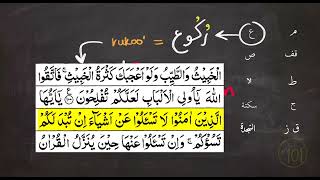 rukoo' = رُكُوع
ع
م
قف
ص
ط
لا
ج
سكتة
ق ز
السجدة
الْخَبِيثُ وَالطَّيِّبُ وَلَوْ أَعْجَبَكَ كَثْرَةُ الْخَبِيثِ ۚ فَاتَّقُوا
اللَّهَ يَا أُولِي الْأَلْبَابِ لَعَلَّكُمْ تُفْلِحُونَ ع يَا أَيُّهَا
الَّذِينَ آمَنُوا لَا تَسْأَلُوا عَنْ أَشْيَاءَ إِنْ تُبْدَ لَكُمْ
تَسُؤْكُمْ ۚ وَإِنْ تَسْأَلُوا عَنْهَا حِينَ يُنَزَّلُ الْقُرْآنُ
101